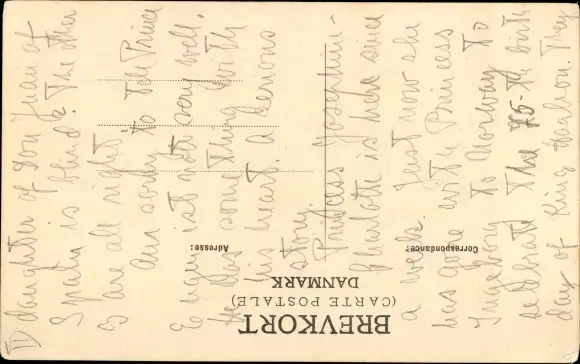 BREVKORT
(CARTE POSTALE)
DANMARK
Correspondance:
Adresse:
II) daughter of Don Juan of
Spain is blind. The other
3 are all right.
Am sorry to tell Prince
Eugen is not so very well.
He has something with
his heart. A serious
story.
Princess Josephine-
Charlotte is here since
a week. Just now she
has gone with Princess
Ingeborg to Norway to
celebrate the 75-th birth
day of King Haakon. They